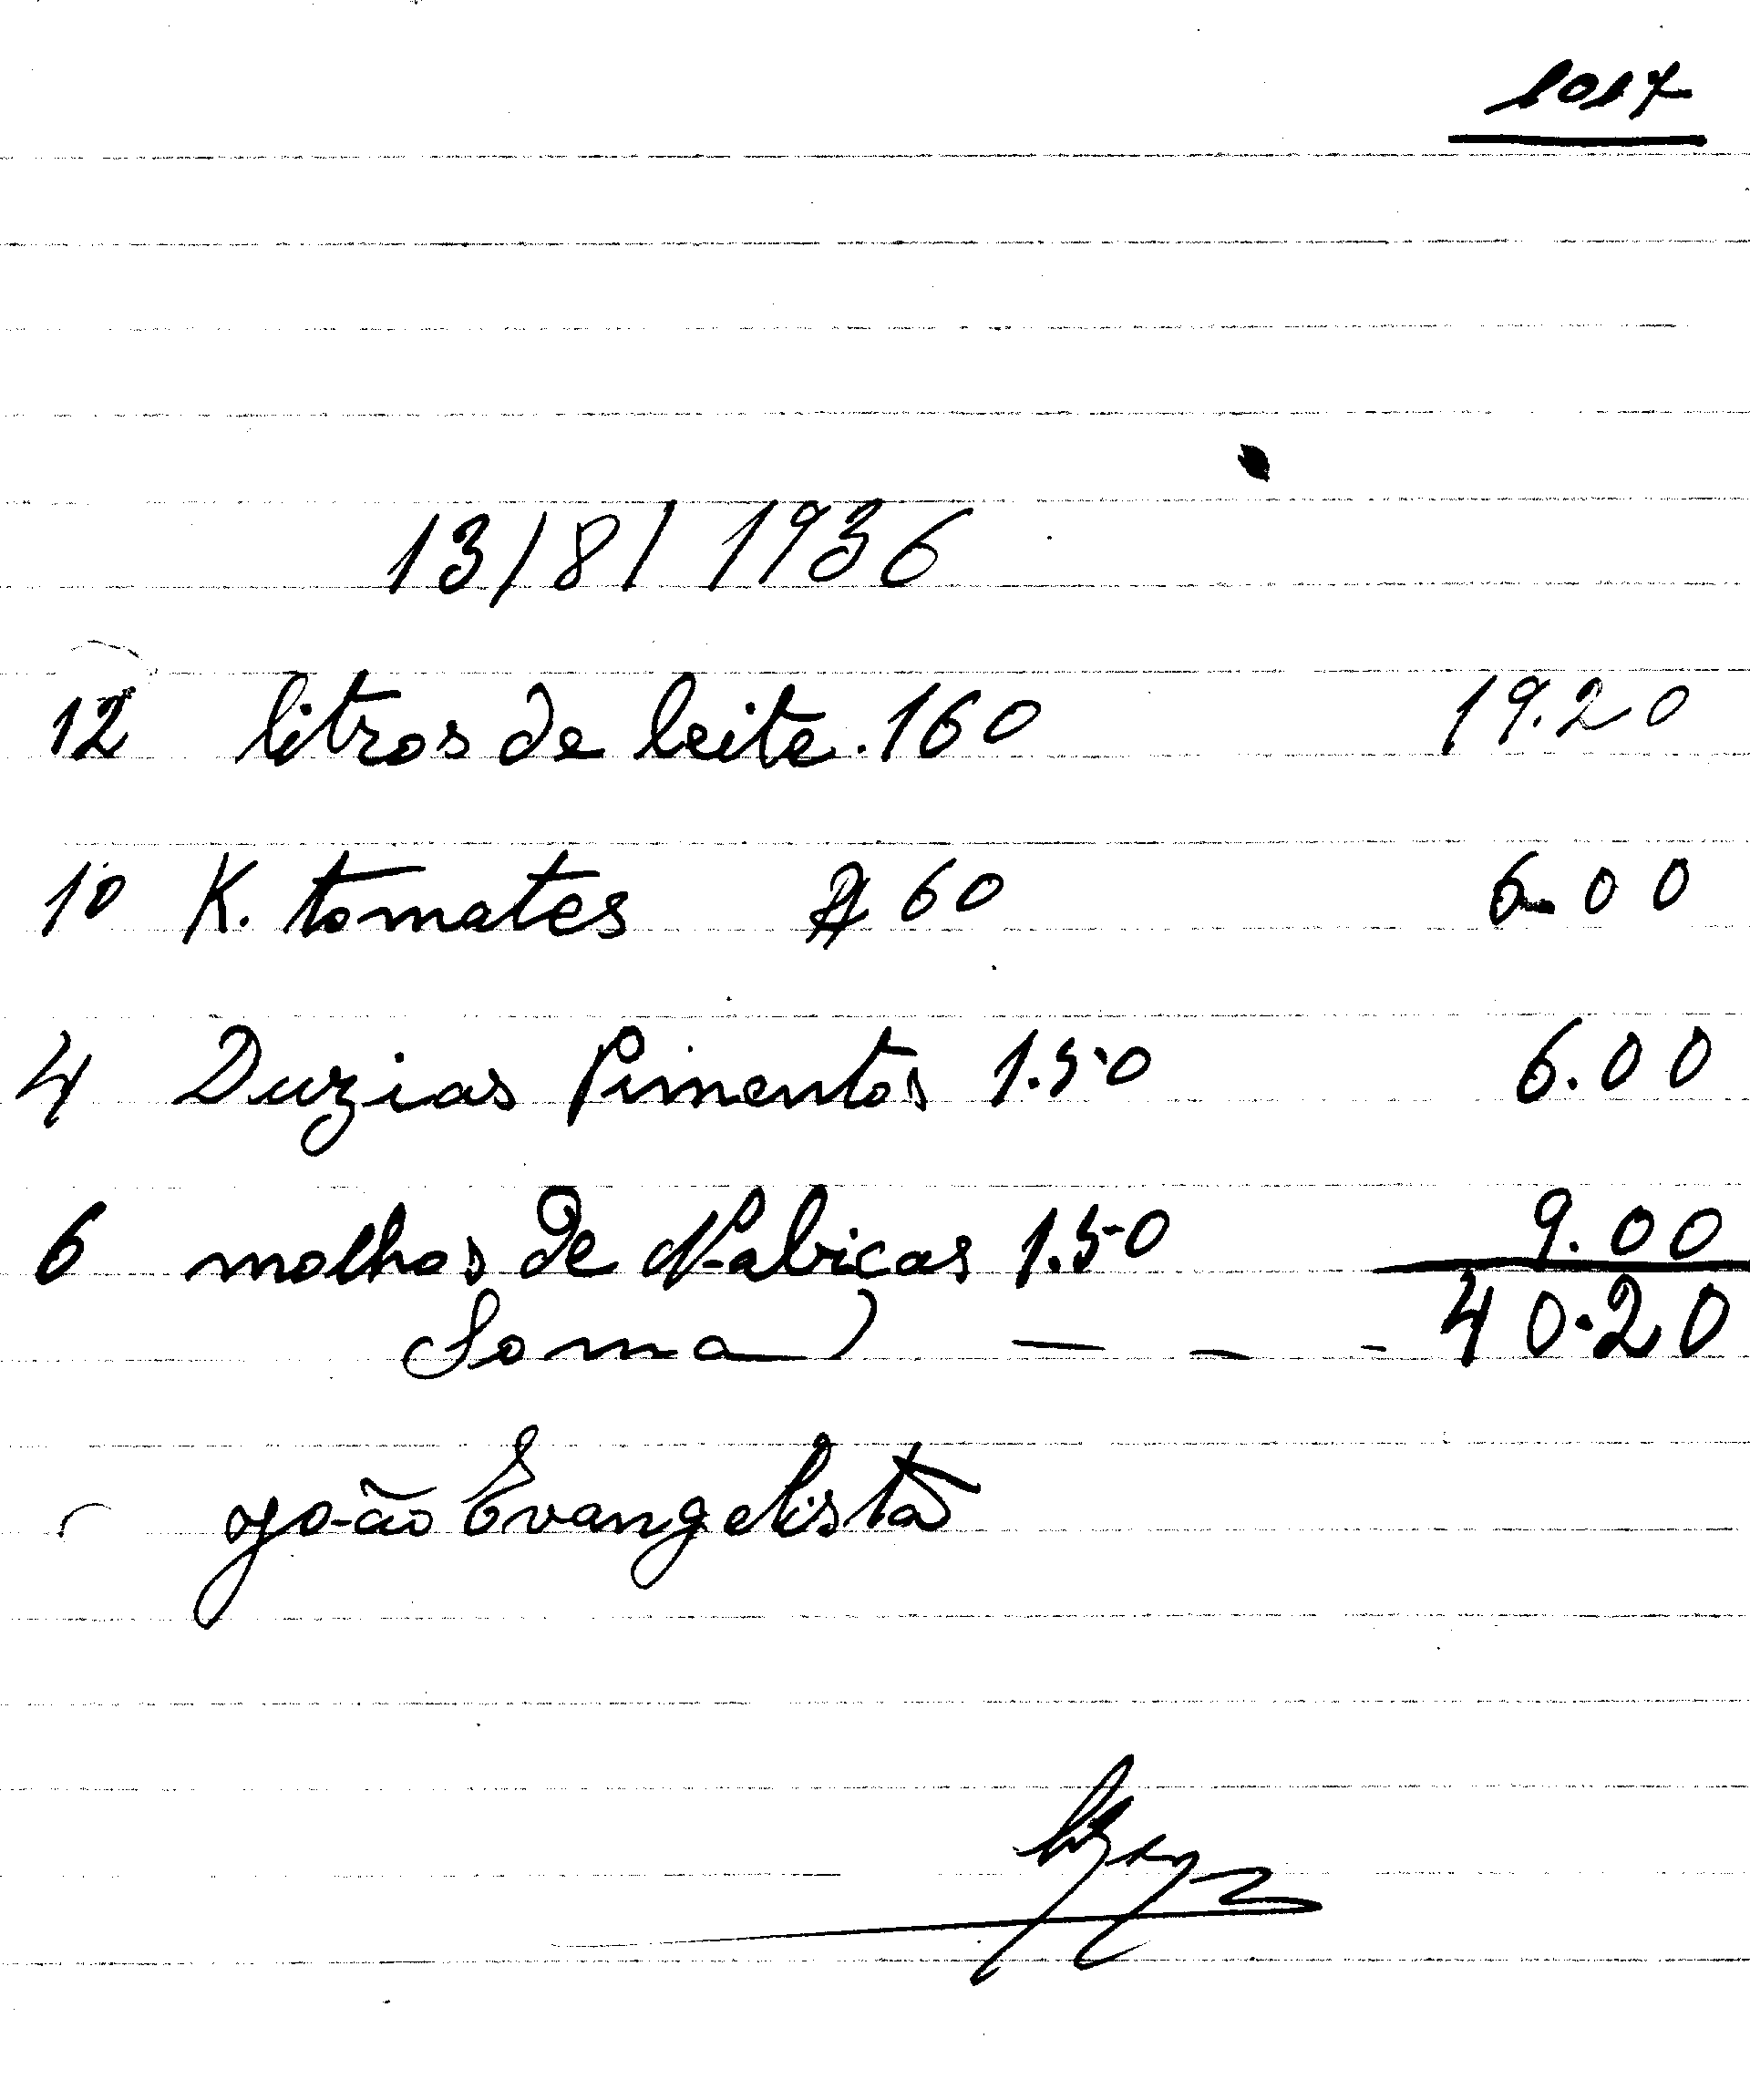 1017
13/8/1936
12 litros de leite. 160 19.20
10 K. tomates $60 6.00
4 Duzias Pimentos 1.50 6.00
6 molhos de Nabicas 1.50 9.00
Soma) — — - 40.20
João Evangelista